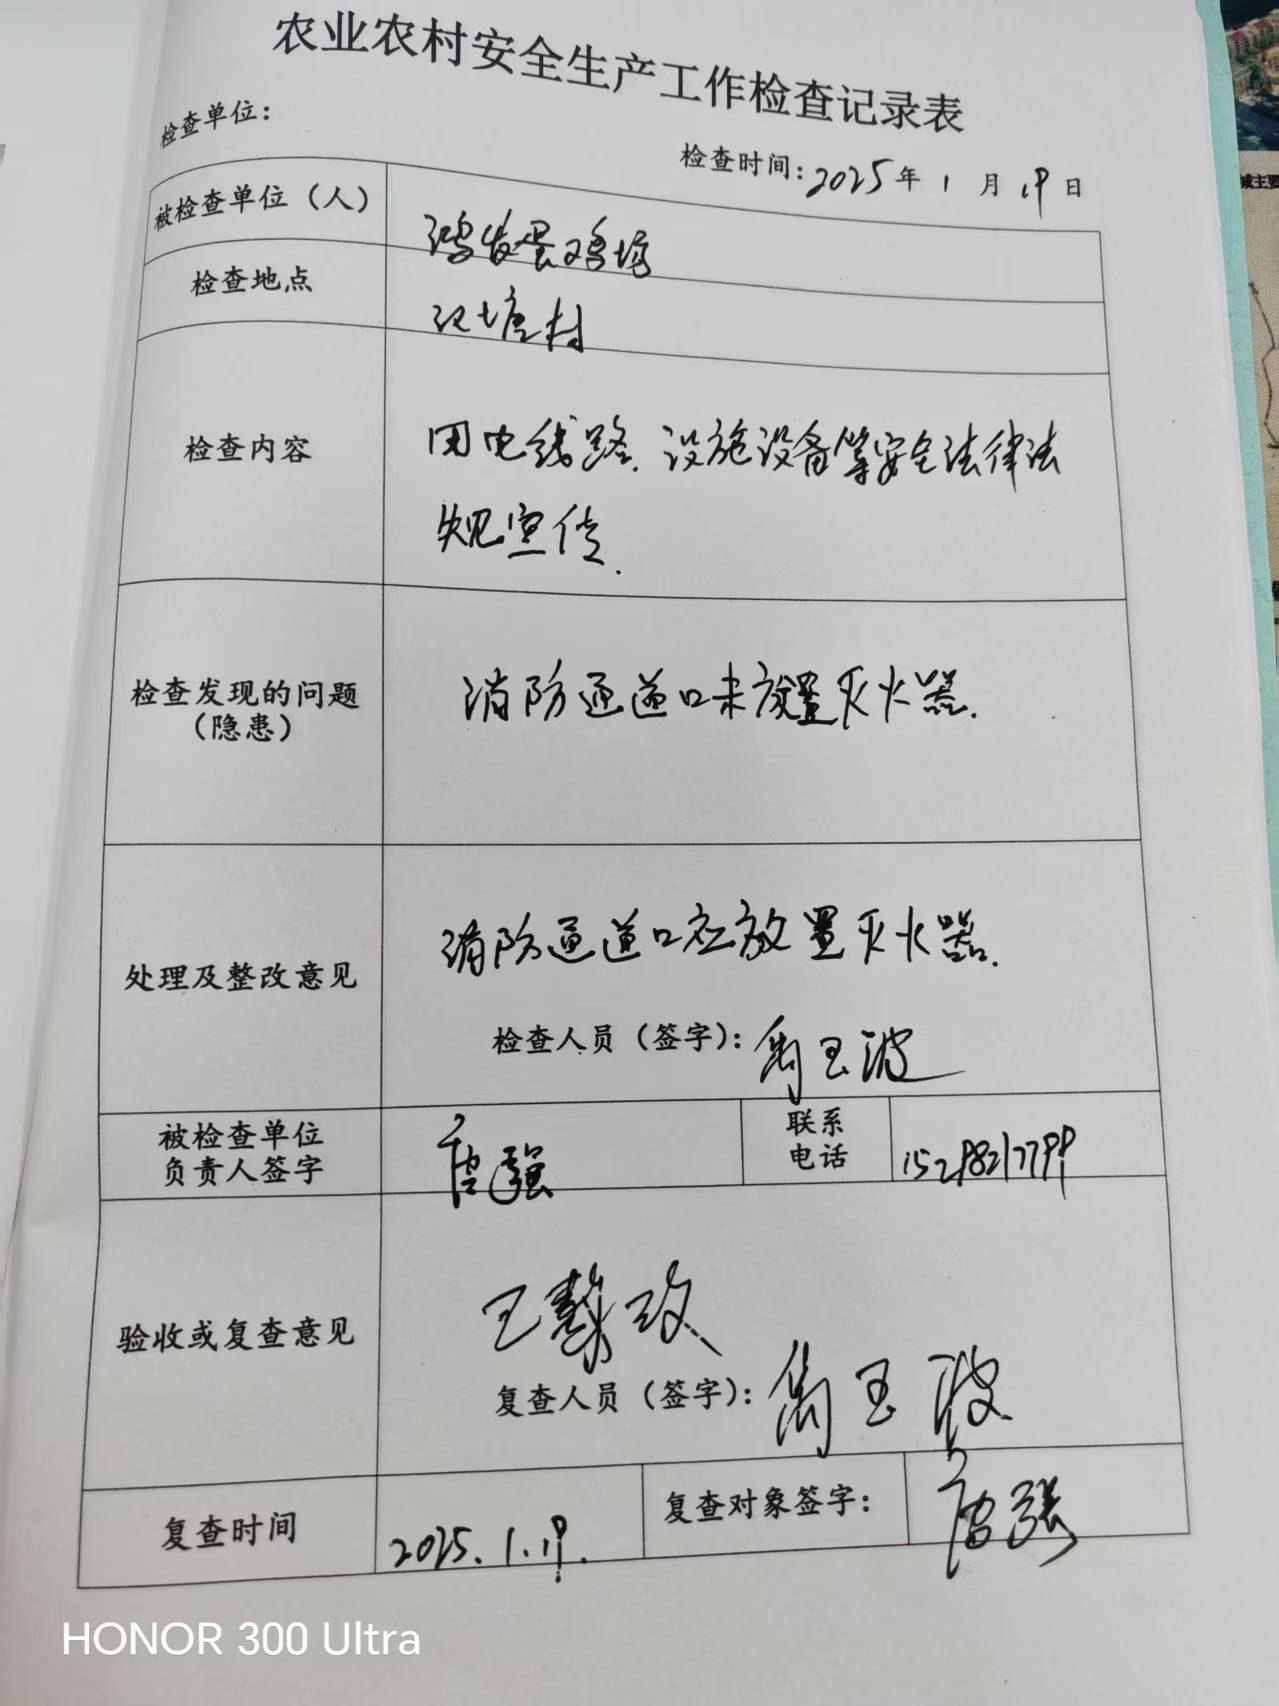 农业农村安全生产工作检查记录表
检查单位：
检查时间：2025年1月19日
被检查单位（人） 鸿发蛋鸡场
检查地点 汉塘村
检查内容 用电线路、设施设备等安全法律法
规宣传.
检查发现的问题
（隐患） 消防通道口未放置灭火器.
处理及整改意见 消防通道口应放置灭火器.
检查人员（签字）： 禹玉波
被检查单位
负责人签字 唐强
联系
电话
验收或复查意见 已整改
复查人员（签字）： 禹玉波
复查时间 2025.1.19.
复查对象签字： 唐强
城主要
HONOR 300 Ultra